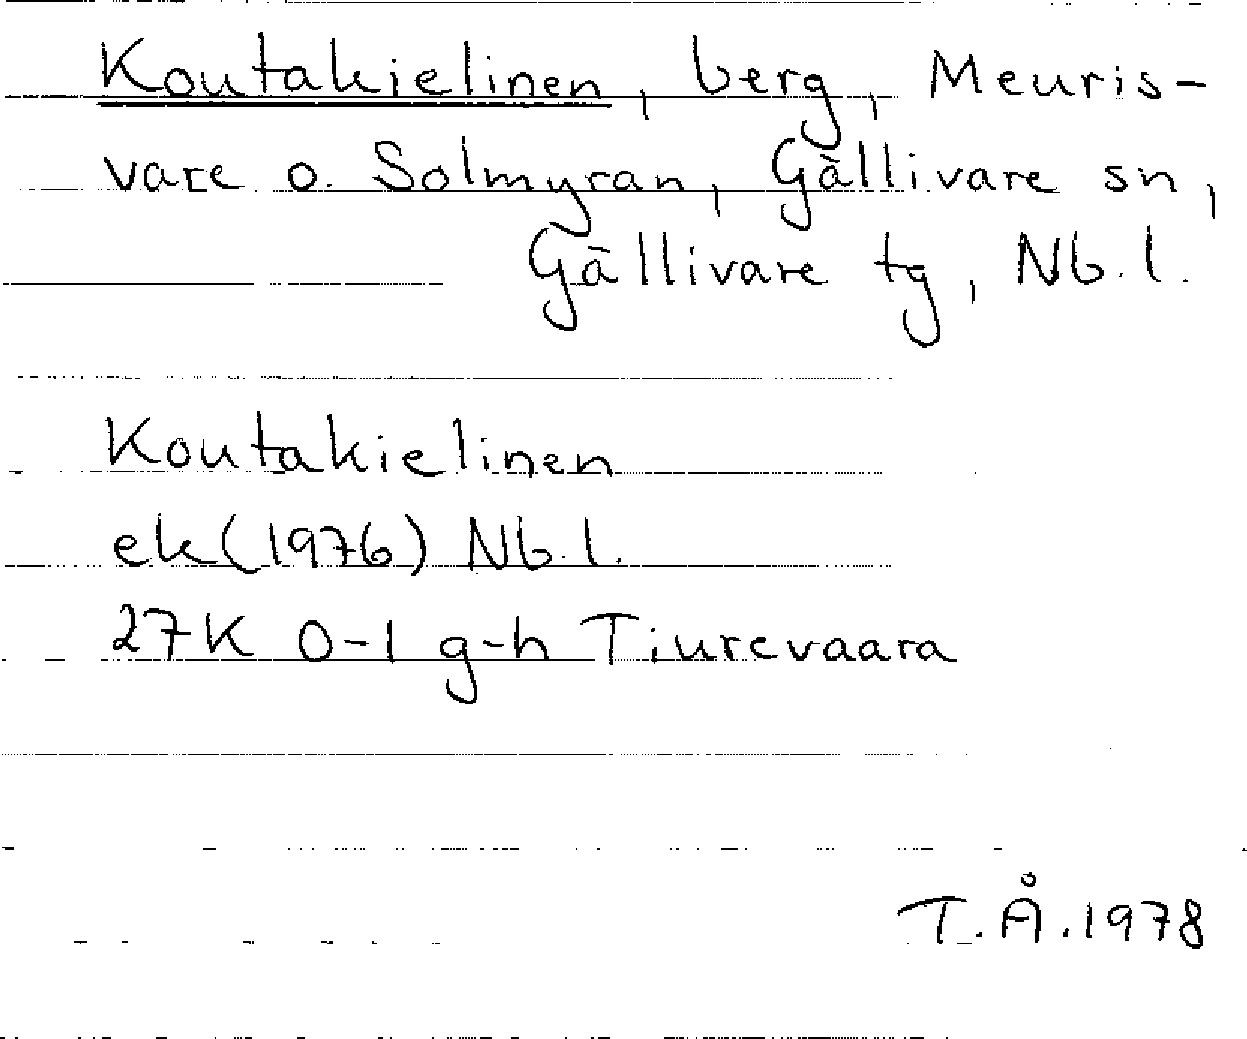 Koutakielinen, berg, Meuris-
vare o. Solmyran, Gällivare sn,
Gällivare tg, Nb.l.
Koutakielinen
ek(1976) Nb.l.
27K 0-1 g-h Tiurevaara
T.Å.1978